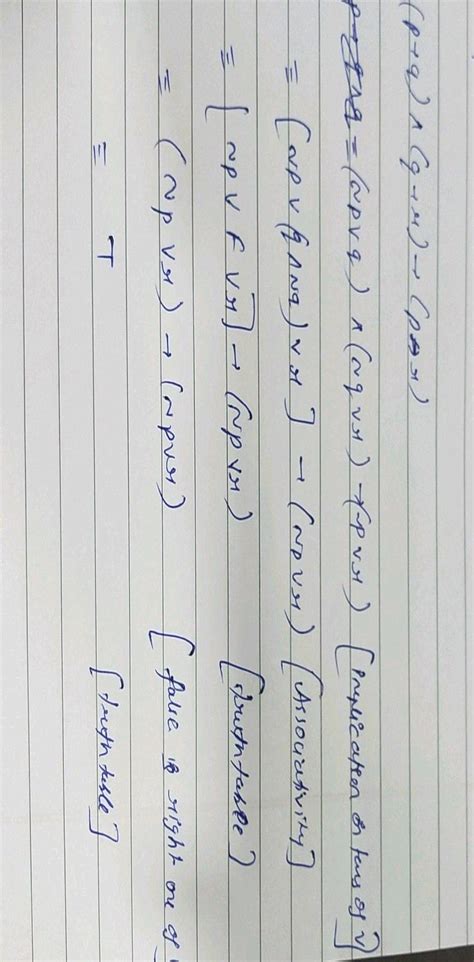 (p→q) ∧ (q→r) → (p→r)
≡ (~p∨q) ∧ (~q∨r) → (~p∨r) [Implication in terms of ∨]
≡ [~p ∨ (q∧~q) ∨ r] → (~p∨r) [Associativity]
≡ [~p ∨ F ∨ r] → (~p∨r) [truth table]
≡ (~p ∨ r) → (~p∨r) [false is right one of
≡ T [truth table]